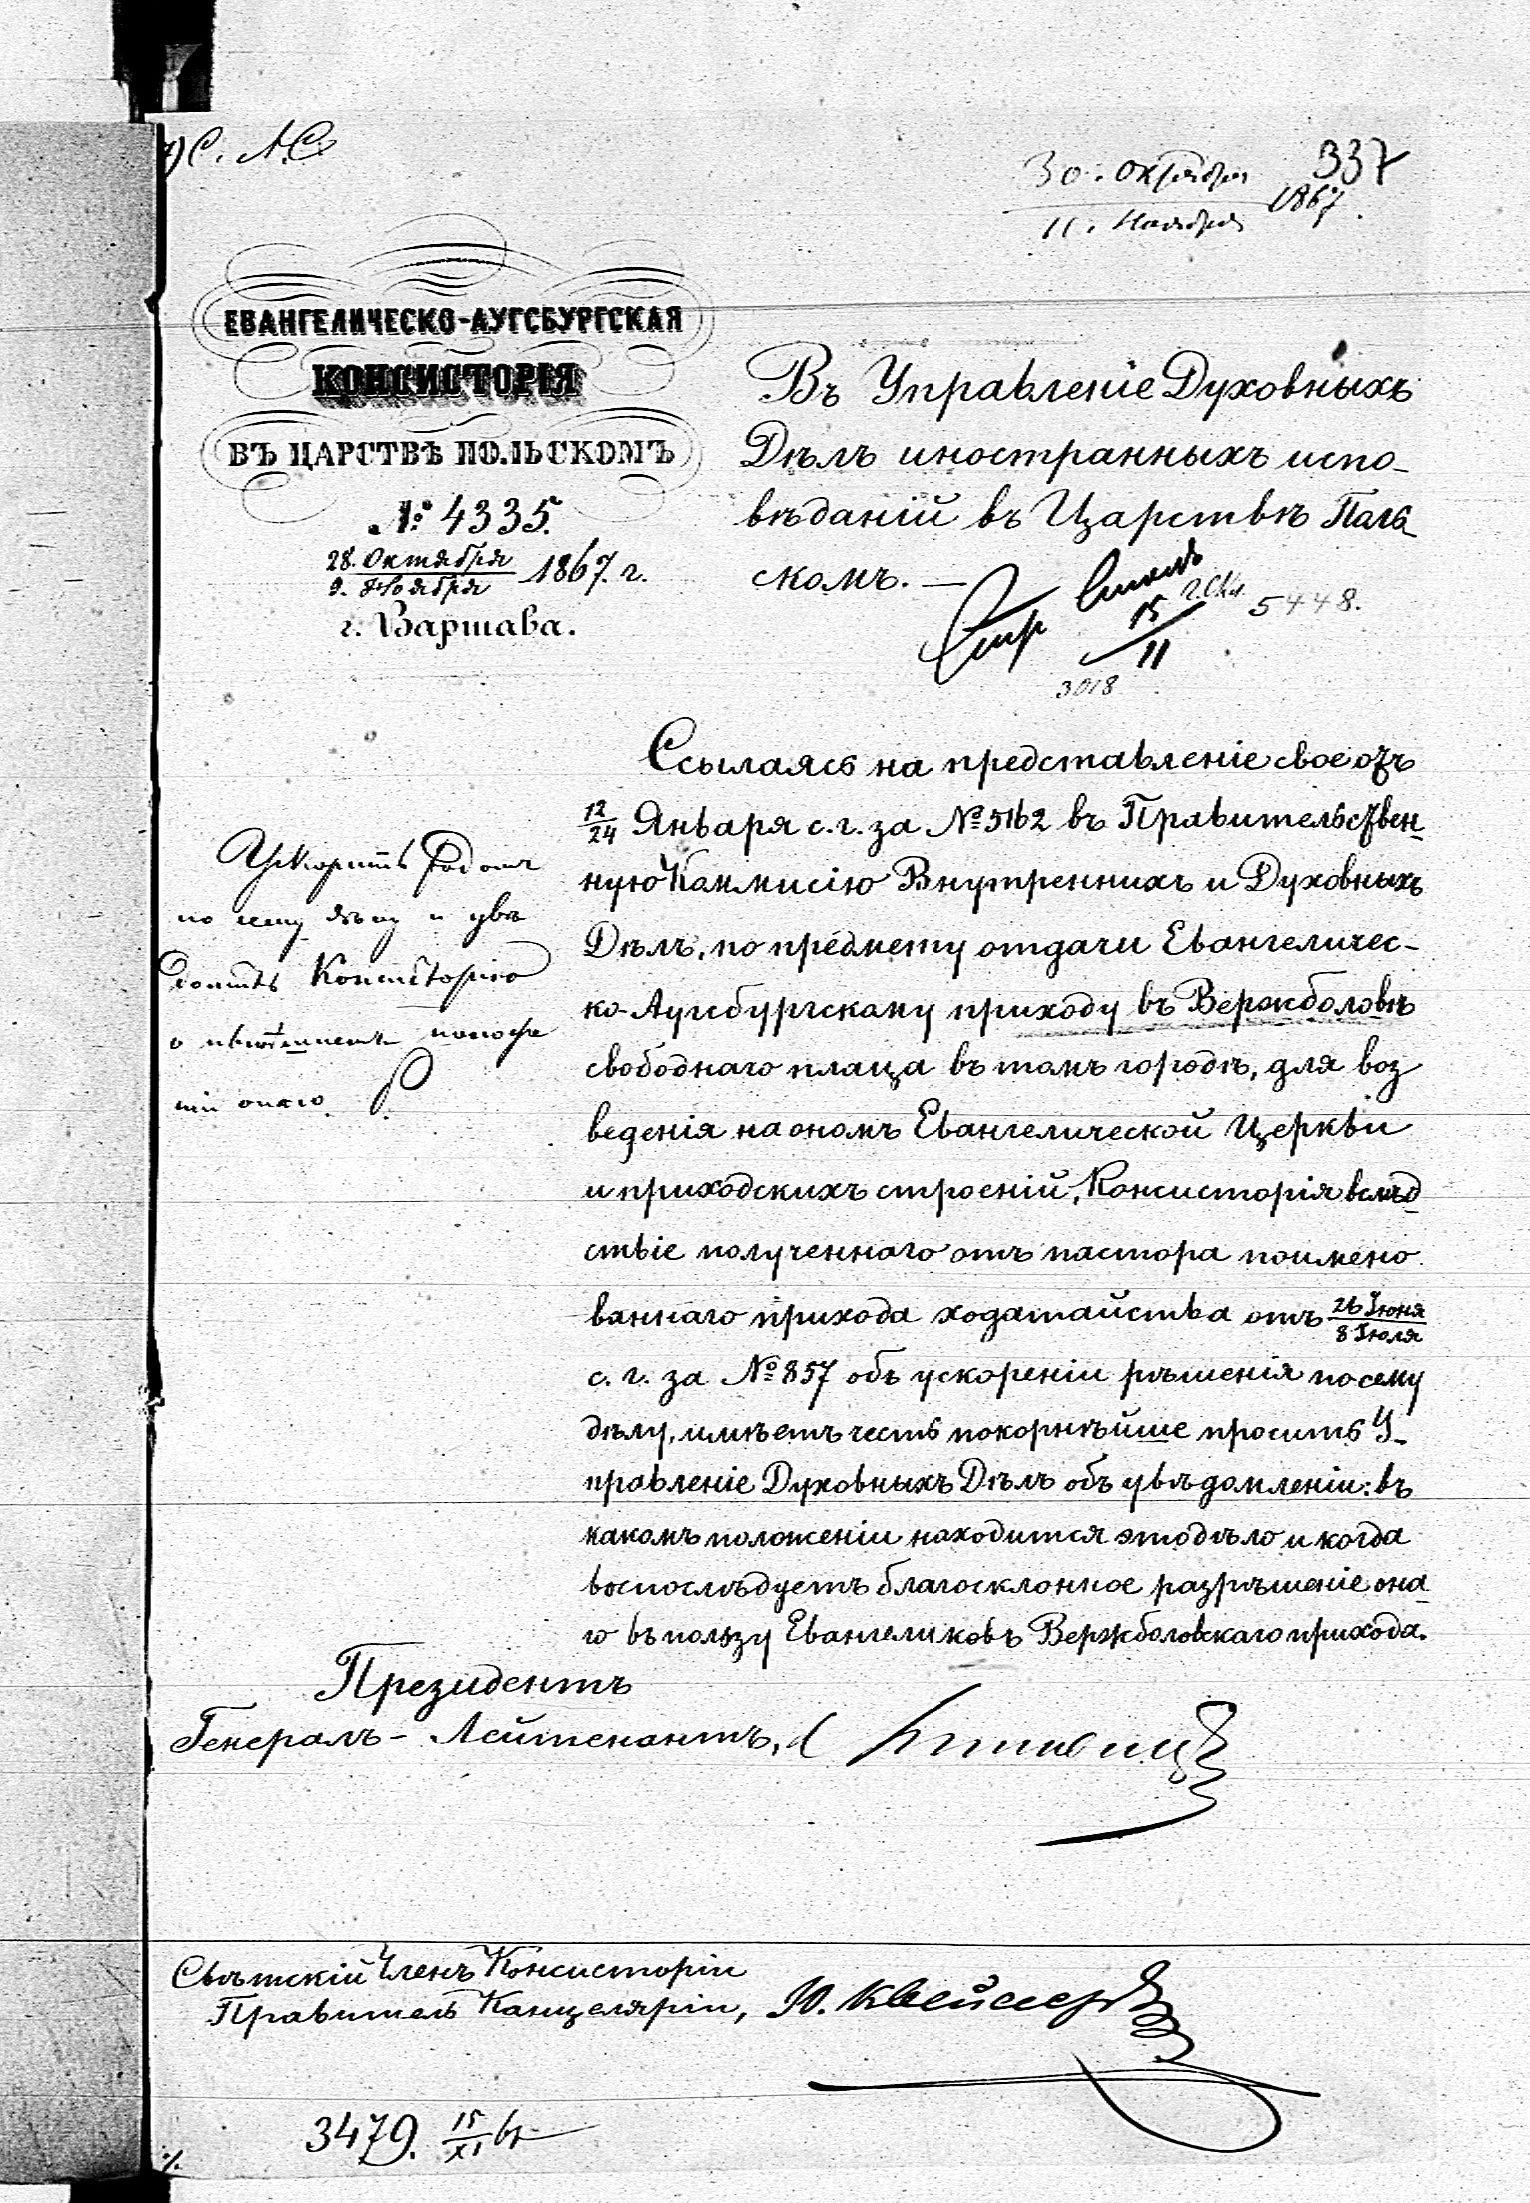 С. А. С.
337
30. Октября
11. Ноября
1867.
ЕВАНГЕЛИЧЕСКО-АУГСБУРГСКАЯ
КОНСИСТОРІЯ
ВЪ ЦАРСТВѢ ПОЛЬСКОМЪ
№ 4335.
28. Октября
9. Ноября
1867. г.
г. Варшава.
Въ Управленіе Духовныхъ
Дѣлъ иностранныхъ испо-
вѣданій въ Царствѣ Поль-
скомъ. —
15
11
5448.
3018
Ссылаясь на представленіе свое отъ
12/24 Января с. г. за № 5162 въ Правительствен-
ную Коммисію Внутреннихъ и Духовныхъ
Дѣлъ, по предмету отдачи Евангеличес-
ко-Аугсбургскому приходу въ Вержболовѣ
свободнаго плаца въ томъ городѣ, для воз
веденія на ономъ Евангелической Церкви
и приходскихъ строеній, Консисторія вслѣд-
ствіе полученнаго отъ пастора поимено
ваннаго прихода ходатайства отъ 26 Іюня/8 Іюля
с. г. за № 857 объ ускореніи рѣшенія по сему
дѣлу, имѣетъ честь покорнѣйше просить У-
правленіе Духовныхъ Дѣлъ объ увѣдомленіи: въ
какомъ положеніи находится это дѣло и когда
воспослѣдуетъ благосклонное разрѣшеніе она-
го въ пользу Евангеликовъ Вержболовскаго прихода.
Ускорить
по сему дѣлу и увѣ
домить Консисторію
о
оного.
Президентъ
Генералъ-Лейтенантъ,
Свѣтскій Членъ Консисторіи
Правитель Канцеляріи, Ю.
3479. 15/XI 67